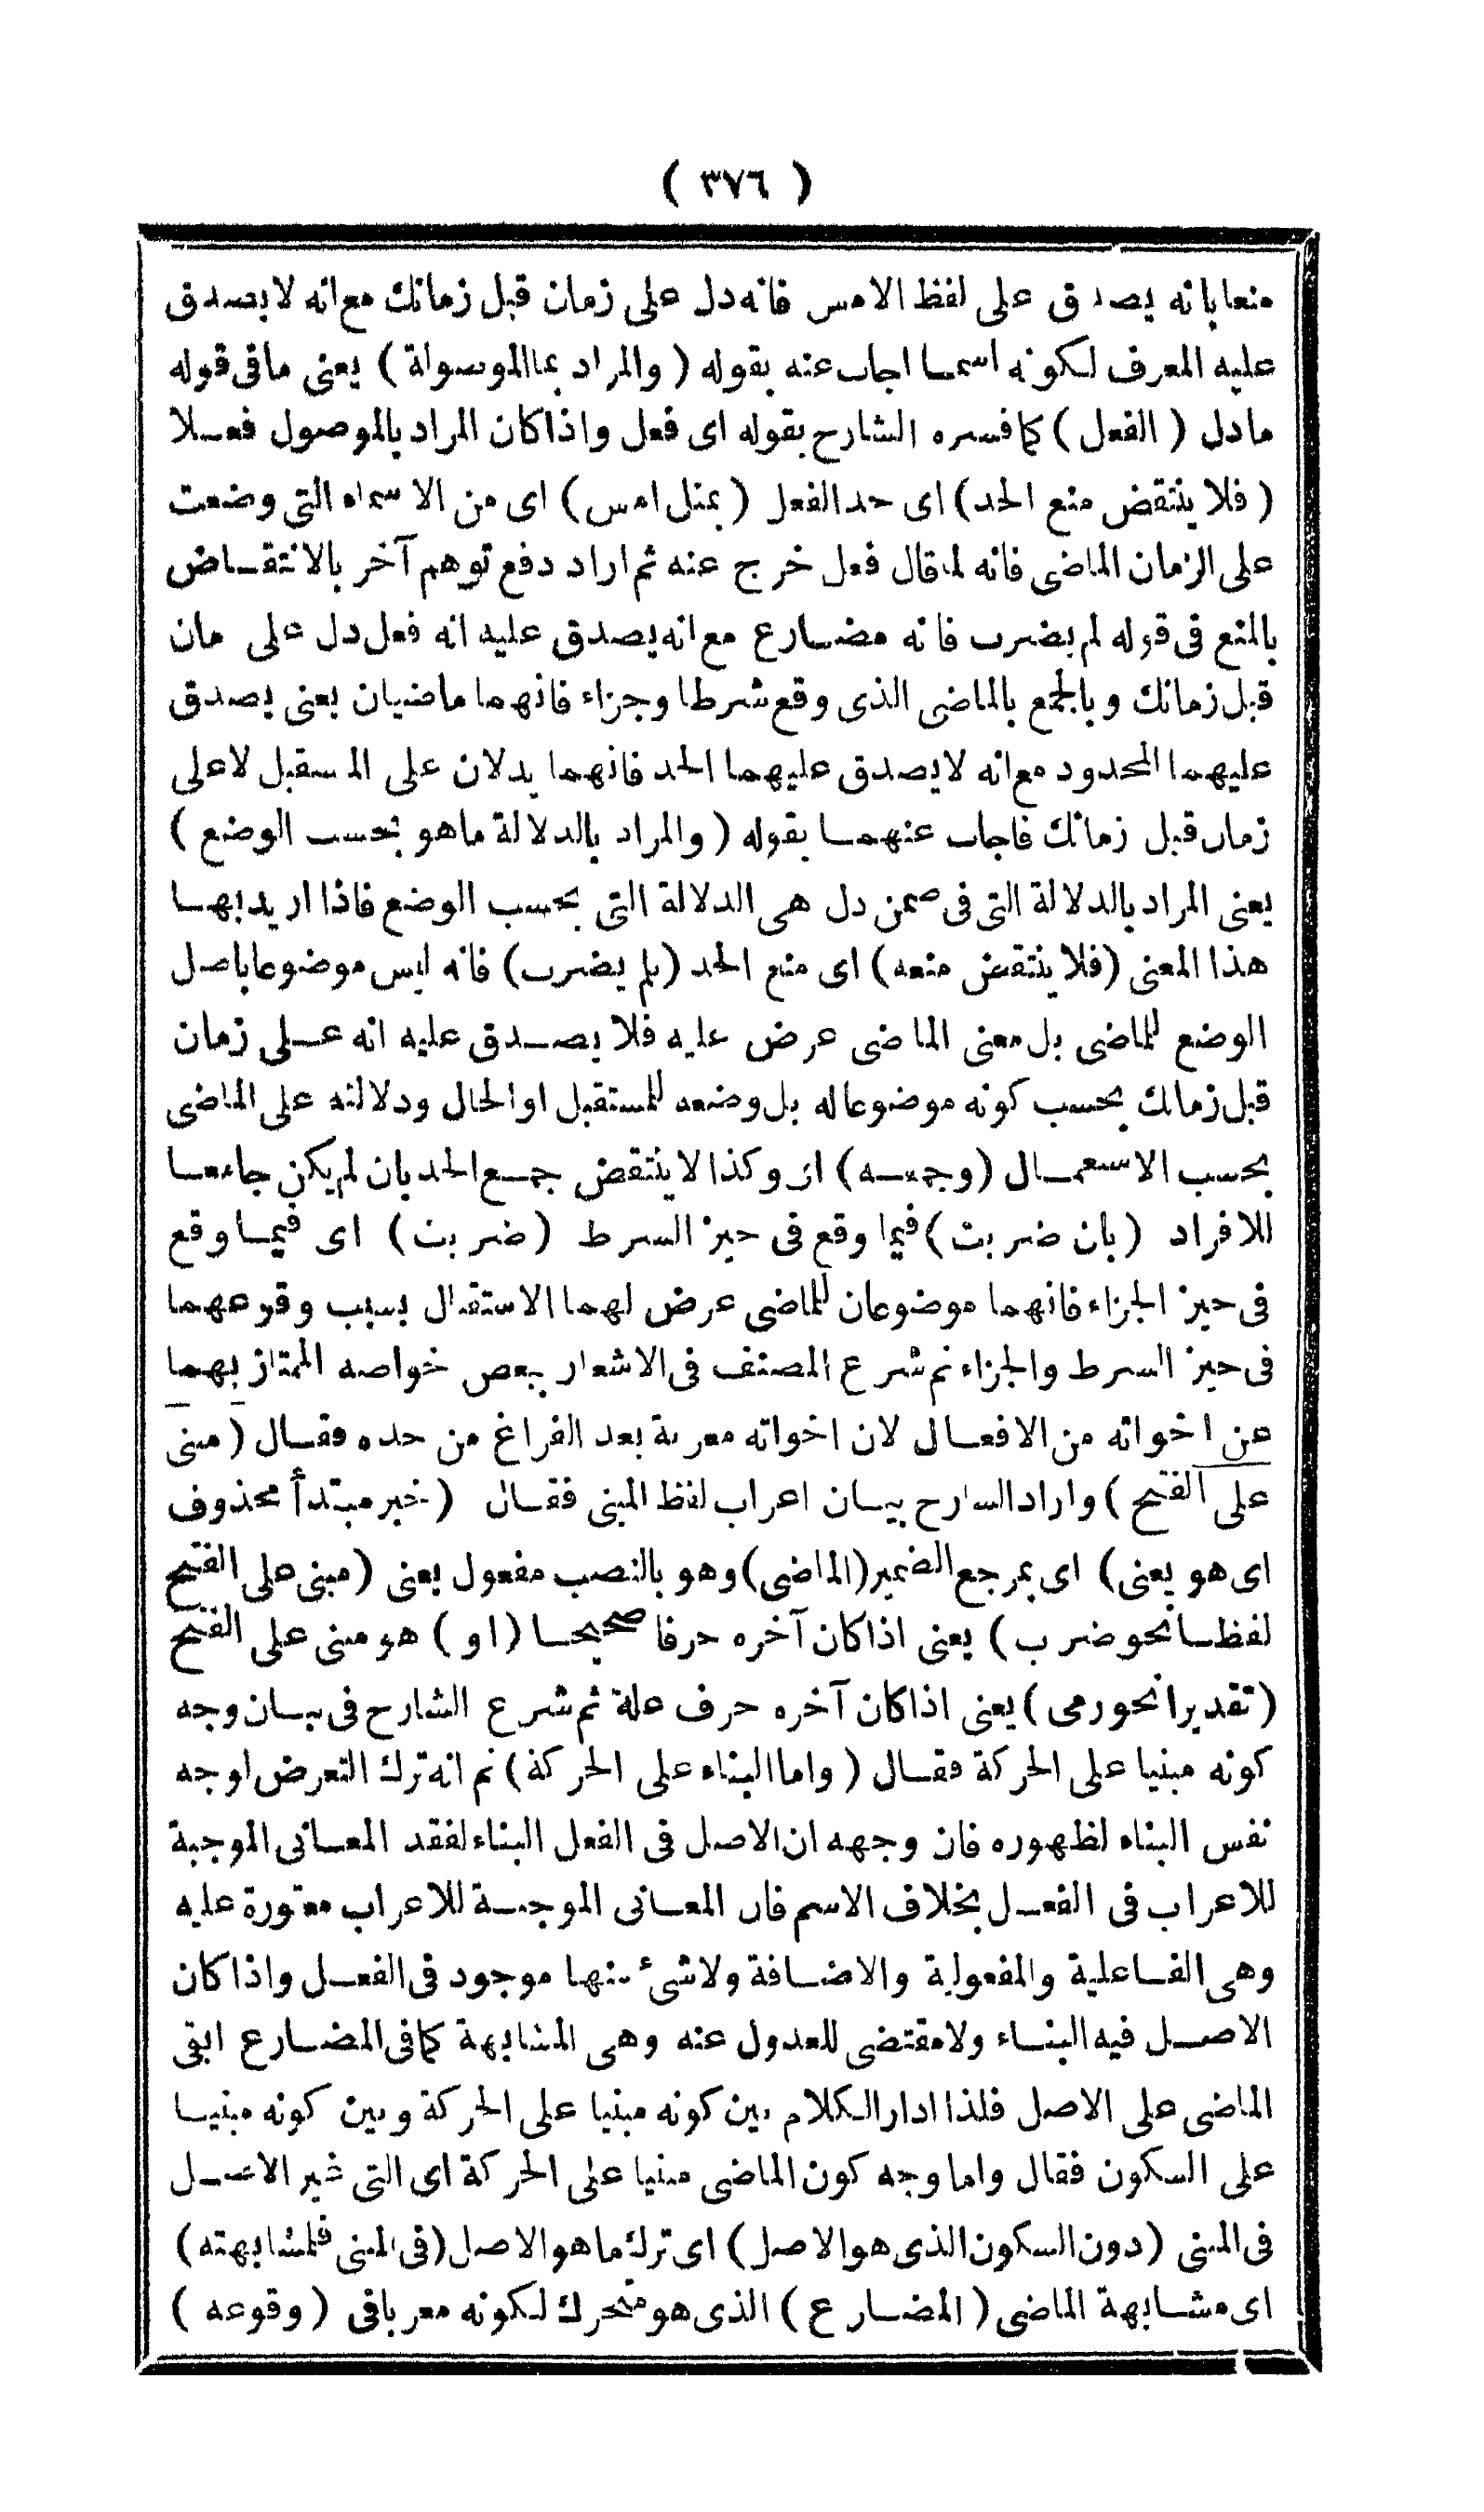 ( ٣٧٦ )
منعا بانه يصدق على لفظ الامس فانه دل على زمان قبل زمانك مع انه لا يصدق
عليه المعرف لكونه اسما اجاب عنه بقوله ( والمراد بما الموصولة ) يعنى ما فى قوله
مادل ( الفعل ) كما فسره الشارح بقوله اى فعل واذا كان المراد بالموصول فعلا
( فلا ينتقض منع الحد ) اى حد الفعل ( بمثل امس ) اى من الاسماء التى وضعت
على الزمان الماضى فانه لما قال فعل خرج عنه ثم اراد دفع توهم آخر بالانتقاض
بالمنع فى قوله لم يضرب فانه مضارع مع انه يصدق عليه انه فعل دل على مان
قبل زمانك وبالجمع بالماضى الذى وقع شرطا وجزاء فانهما ماضيان يعنى يصدق
عليهما المحدود مع انه لا يصدق عليهما الحد فانهما يدلان على المستقبل لا على
زمان قبل زمانك فاجاب عنهما بقوله ( والمراد بالدلالة ما هو بحسب الوضع )
يعنى المراد بالدلالة التى فى ضمن دل هى الدلالة التى بحسب الوضع فاذا اريد بها
هذا المعنى ( فلا ينتقض منعه ) اى منع الحد ( بلم يضرب ) فانه ليس موضوعا باصل
الوضع للماضى بل معنى الماضى عرض عليه فلا يصدق عليه انه على زمان
قبل زمانك بحسب كونه موضوعا له بل وضعه للمستقبل او الحال ودلالته على الماضى
بحسب الاستعمال ( وجمعه ) اى وكذا لا ينتقض جمع الحد بان لم يكن جامعا
للافراد ( بان ضربت ) فيما وقع فى حيز الشرط ( ضربت ) اى فيما وقع
فى حيز الجزاء فانهما موضوعان للماضى عرض لهما الاستقبال بسبب وقوعهما
فى حيز الشرط والجزاء ثم شرع المصنف فى الاشعار ببعض خواصه الممتاز بهما
عن اخواته من الافعال لان اخواته معربة بعد الفراغ من حده فقال ( مبنى
على الفتح ) واراد الشارح بيان اعراب لفظ المبنى فقال ( خبر مبتدأ محذوف
اى هو يعنى ) اى بمرجع الضمير ( الماضى ) وهو بالنصب مفعول يعنى ( مبنى على الفتح
لفظا نحو ضرب ) يعنى اذا كان آخره حرفا صحيحا ( او ) هو مبنى على الفتح
( تقديرا نحو رمى ) يعنى اذا كان آخره حرف علة ثم شرع الشارح فى بيان وجه
كونه مبنيا على الحركة فقال ( واما البناء على الحركة ) ثم انه ترك التعرض لوجه
نفس البناء لظهوره فان وجهه ان الاصل فى الفعل البناء لفقد المعانى الموجبة
للاعراب فى الفعل بخلاف الاسم فان المعانى الموجبة للاعراب معتورة عليه
وهى الفاعلية والمفعولية والاضافة ولا شئ منها موجود فى الفعل واذا كان
الاصل فيه البناء ولا مقتضى للعدول عنه وهى المشابهة كما فى المضارع ابقى
الماضى على الاصل فلذا ادار الكلام بين كونه مبنيا على الحركة وبين كونه مبنيا
على السكون فقال واما وجه كون الماضى مبنيا على الحركة اى التى غير الاصل
فى المبنى ( دون السكون الذى هو الاصل ) اى ترك ما هو الاصل ( فى المبنى فلمشابهته )
اى مشابهة الماضى ( المضارع ) الذى هو متحرك لكونه معربا فى ( وقوعه )